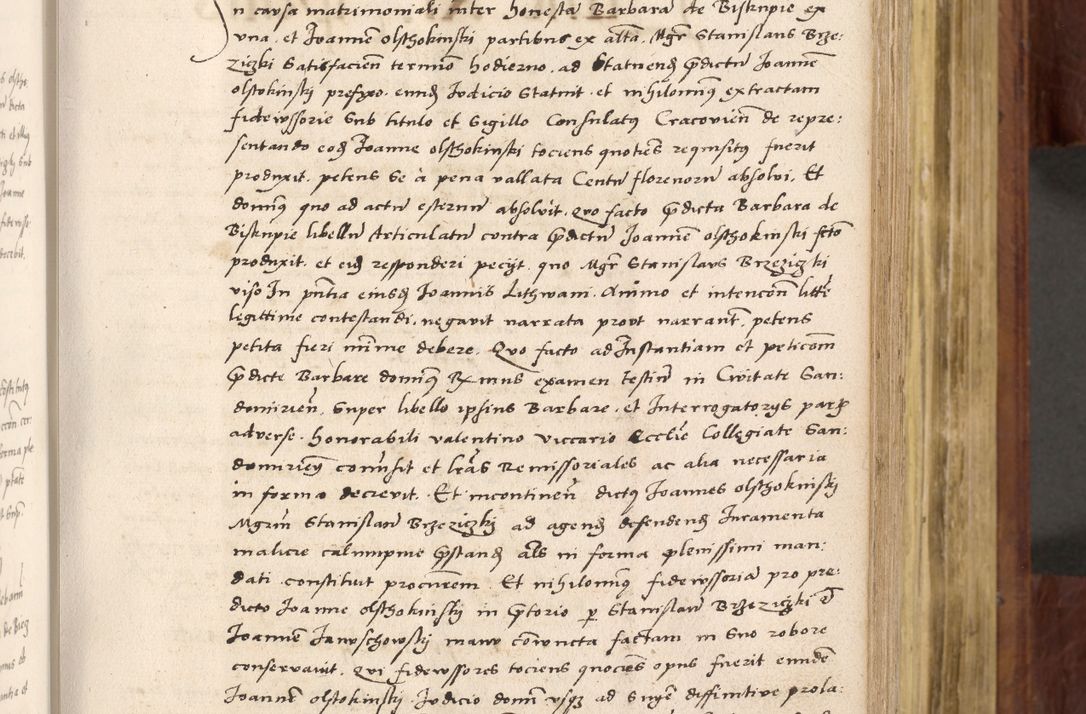 n causa matrimoniali inter honestã Barbarã de Biskupie ex
vna, et Joannem olsthokinski partibus ex altã. Mgr̃ Stanislaus Brze:
ziczki Satisfacieñ termino hodierno, ad Statuendς p̃dictũ Joannẽ
olstokinskij prefixo. eundς Judicio Statuit. et nihilominꝰ extractam
fidewssorie Sub titulo et Sigillo Consulatus Cracovieñ de repre:
sentando eodς Joanne olsthokinski tociens quotiẽs requisitꝰ fuerit
produxit. petens Se à pena vallata Centũ florenorũ absolvi. Et
dominꝰ quo ad actũ esternũ absolvit. Quo facto p̃dicta Barbara de
Biskupie libellũ Articulatũ contra p̃dictũ Joannẽ olsthokinski sctõ
produxit. et eidς responderi pecijt. quo Mgr̃ Stanislaus Brzeziczki
viso In pñtia eiusdς Joannis Lithwani. Animo et intencoñ littẽ
legittime contestandi. negavit narrata provt narrant̃. petens
petita fieri minime debere. Quo facto ad Instantiam et peticoñm
p̃dicte Barbare dominꝰ Rx̃mus examen testiũ in Civitate San:
domirieñ. Super libello ipsius Barbare. et Interrogatorijs partꝭ
adverse. honorabili valentino viccario Ecclie Collegiate San:
domirieñ comisit et lr̃as Remissoriales ac alia necessaria
in forma decrevit. Et incontineñ dictꝰ Joannes olsthokinskij
Mgrũ Stanislaũ Brzeziczkij ad agendς defendendς Juramenta
malicie calumpnie p̃standς als̃ in forma plenissimi man:
dati constituit procurem̃. Et nihilominꝰ fidewssoriã pro pre:
dicto Joanne olsthokinskij in p̃torio ꝑ Stanislaũ Brzeziczki et̃
Joannẽ Janvschowskij manv coñvncta factam in Suo robore
conservavit. Qui fidewssores tociens quociẽs opus fuerit eundẽ
Joannẽ olstokinskij. Judicio domĩ vsqꝫ ad Sng̃e diffinitive prola: